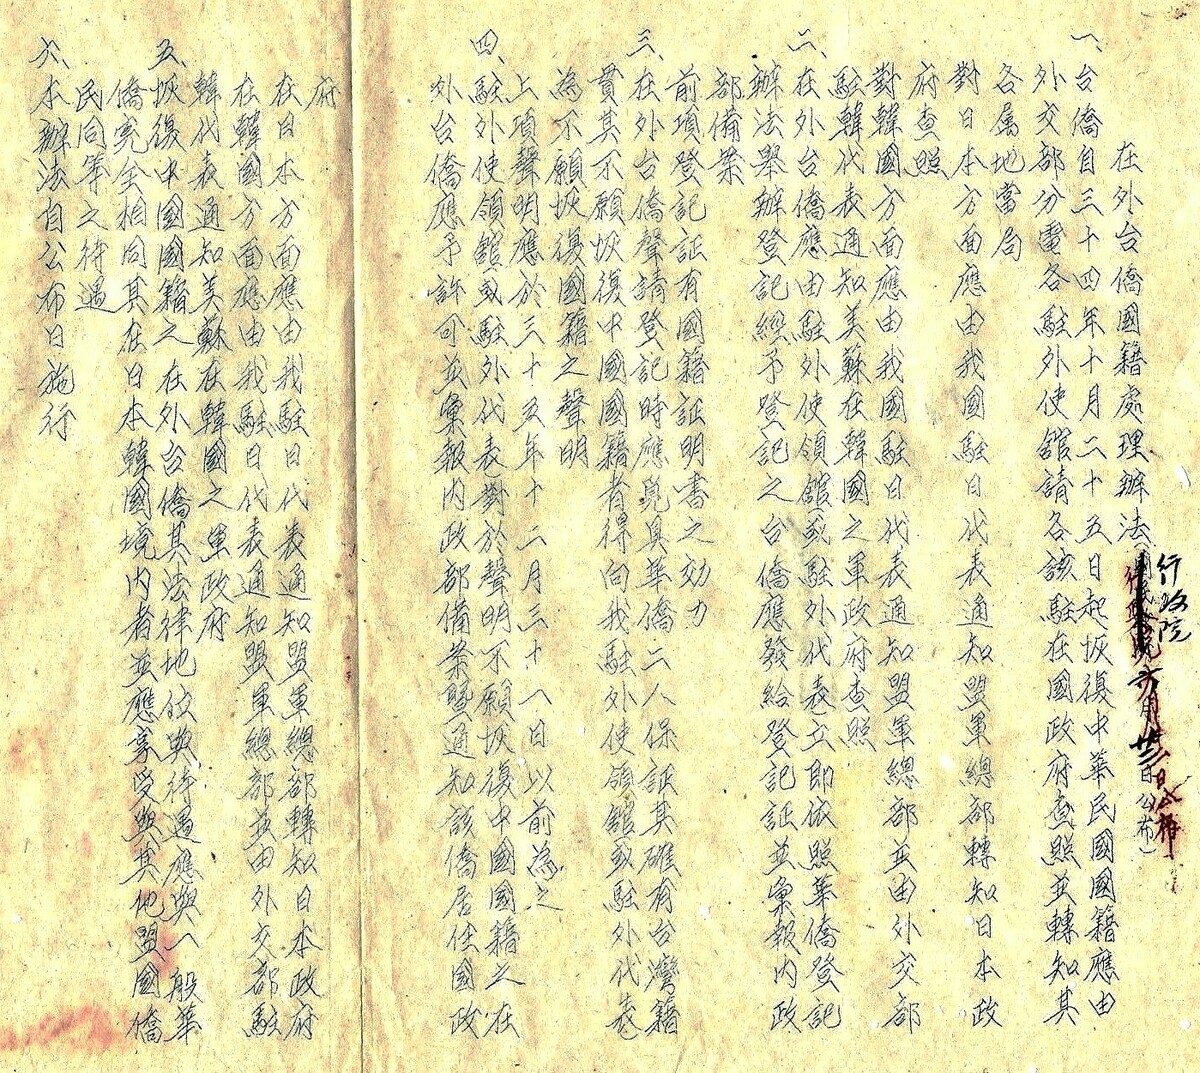 在外台僑國籍處理辦法
行政院
六月廿二日公布）
一、台僑自三十四年十月二十五日起恢復中華民國國籍應由
外交部分電各駐外使館請各該駐在國政府查照並轉知其
各屬地當局
對日本方面應由我國駐日代表通知盟軍總部轉知日本政
府查照
對韓國方面應由我國駐日代表通知盟軍總部並由外交部
駐韓代表通知美蘇在韓國之軍政府查照
二、在外台僑應由駐外使領館或駐外代表立即依照華僑登記
辦法舉辦登記經予登記之台僑應發給登記証並彙報內政
部備案
前項登記証有國籍証明書之効力
三、在外台僑聲請登記時應覓具華僑二人保証其確有台灣籍
貫其不願恢復中國國籍者得向我駐外使領館或駐外代表
為不願恢復國籍之聲明
上項聲明應於三十五年十二月三十一日以前為之
四、駐外使領館或駐外代表對於聲明不願恢復中國國籍之在
外台僑應予許可並彙報內政部備案暨通知該僑居住國政
府
在日本方面應由我駐日代表通知盟軍總部轉知日本政府
在韓國方面應由我駐日代表通知盟軍總部並由外交部駐
韓代表通知美蘇在韓國之軍政府
五、恢復中國國籍之在外台僑其法律地位與待遇應與一般華
僑完全相同其在日本韓國境內者並應享受與其他盟國僑
民同等之待遇
六、本辦法自公布日施行